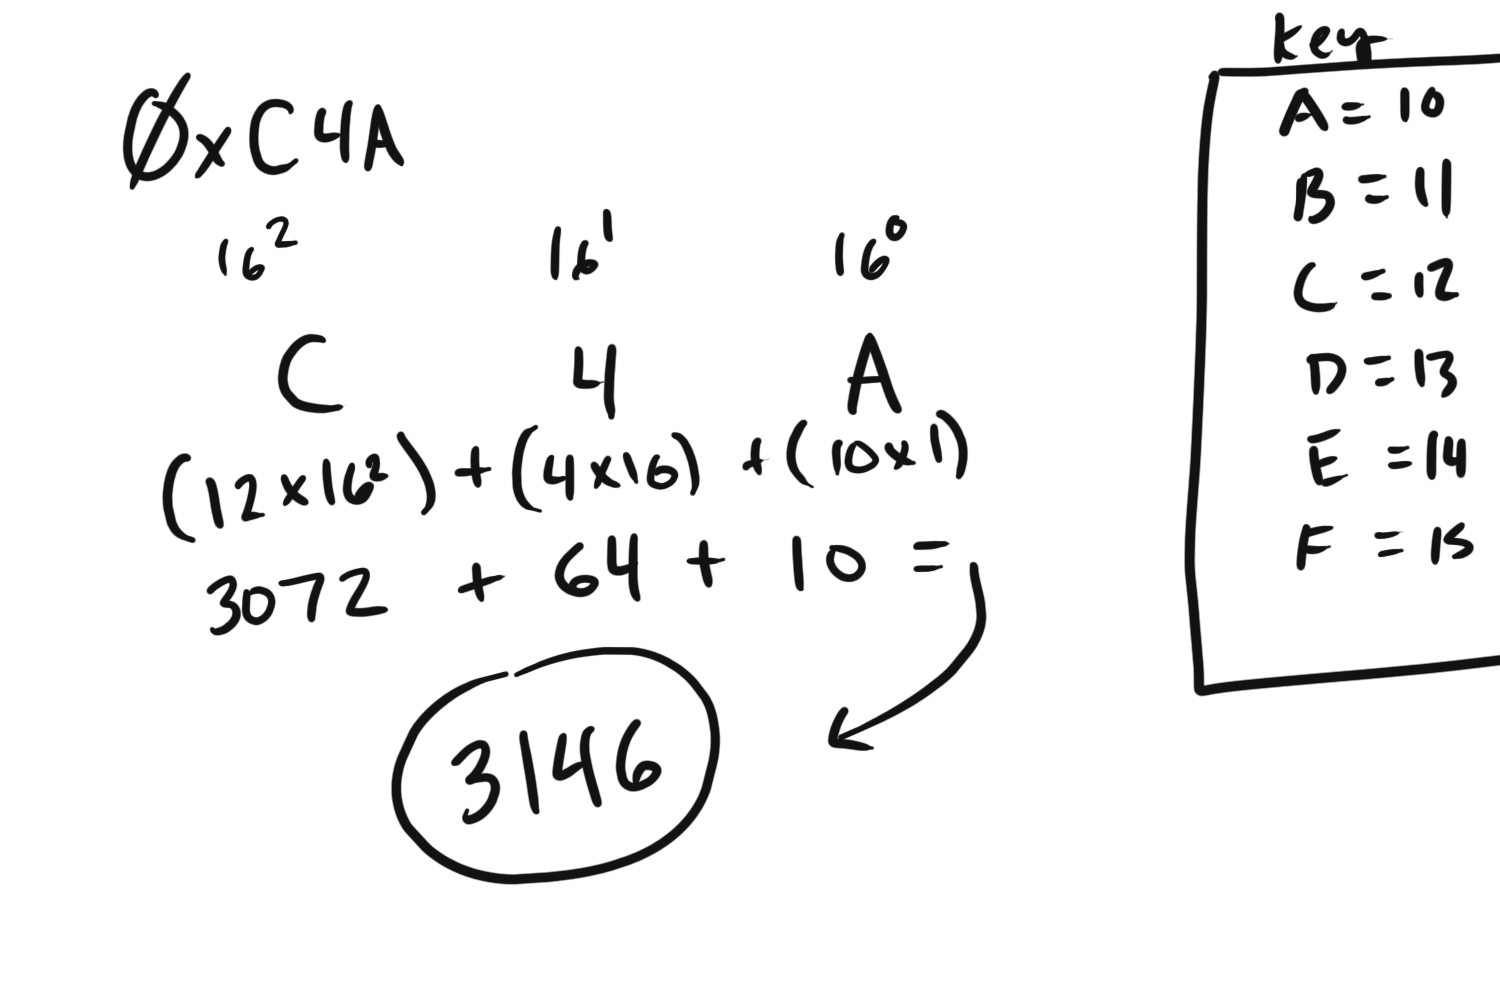 0xC4A
16² 16¹ 16⁰
C 4 A
(12x16²) + (4x16) + (10x1)
3072 + 64 + 10 =
3146
key
A = 10
B = 11
C = 12
D = 13
E = 14
F = 15